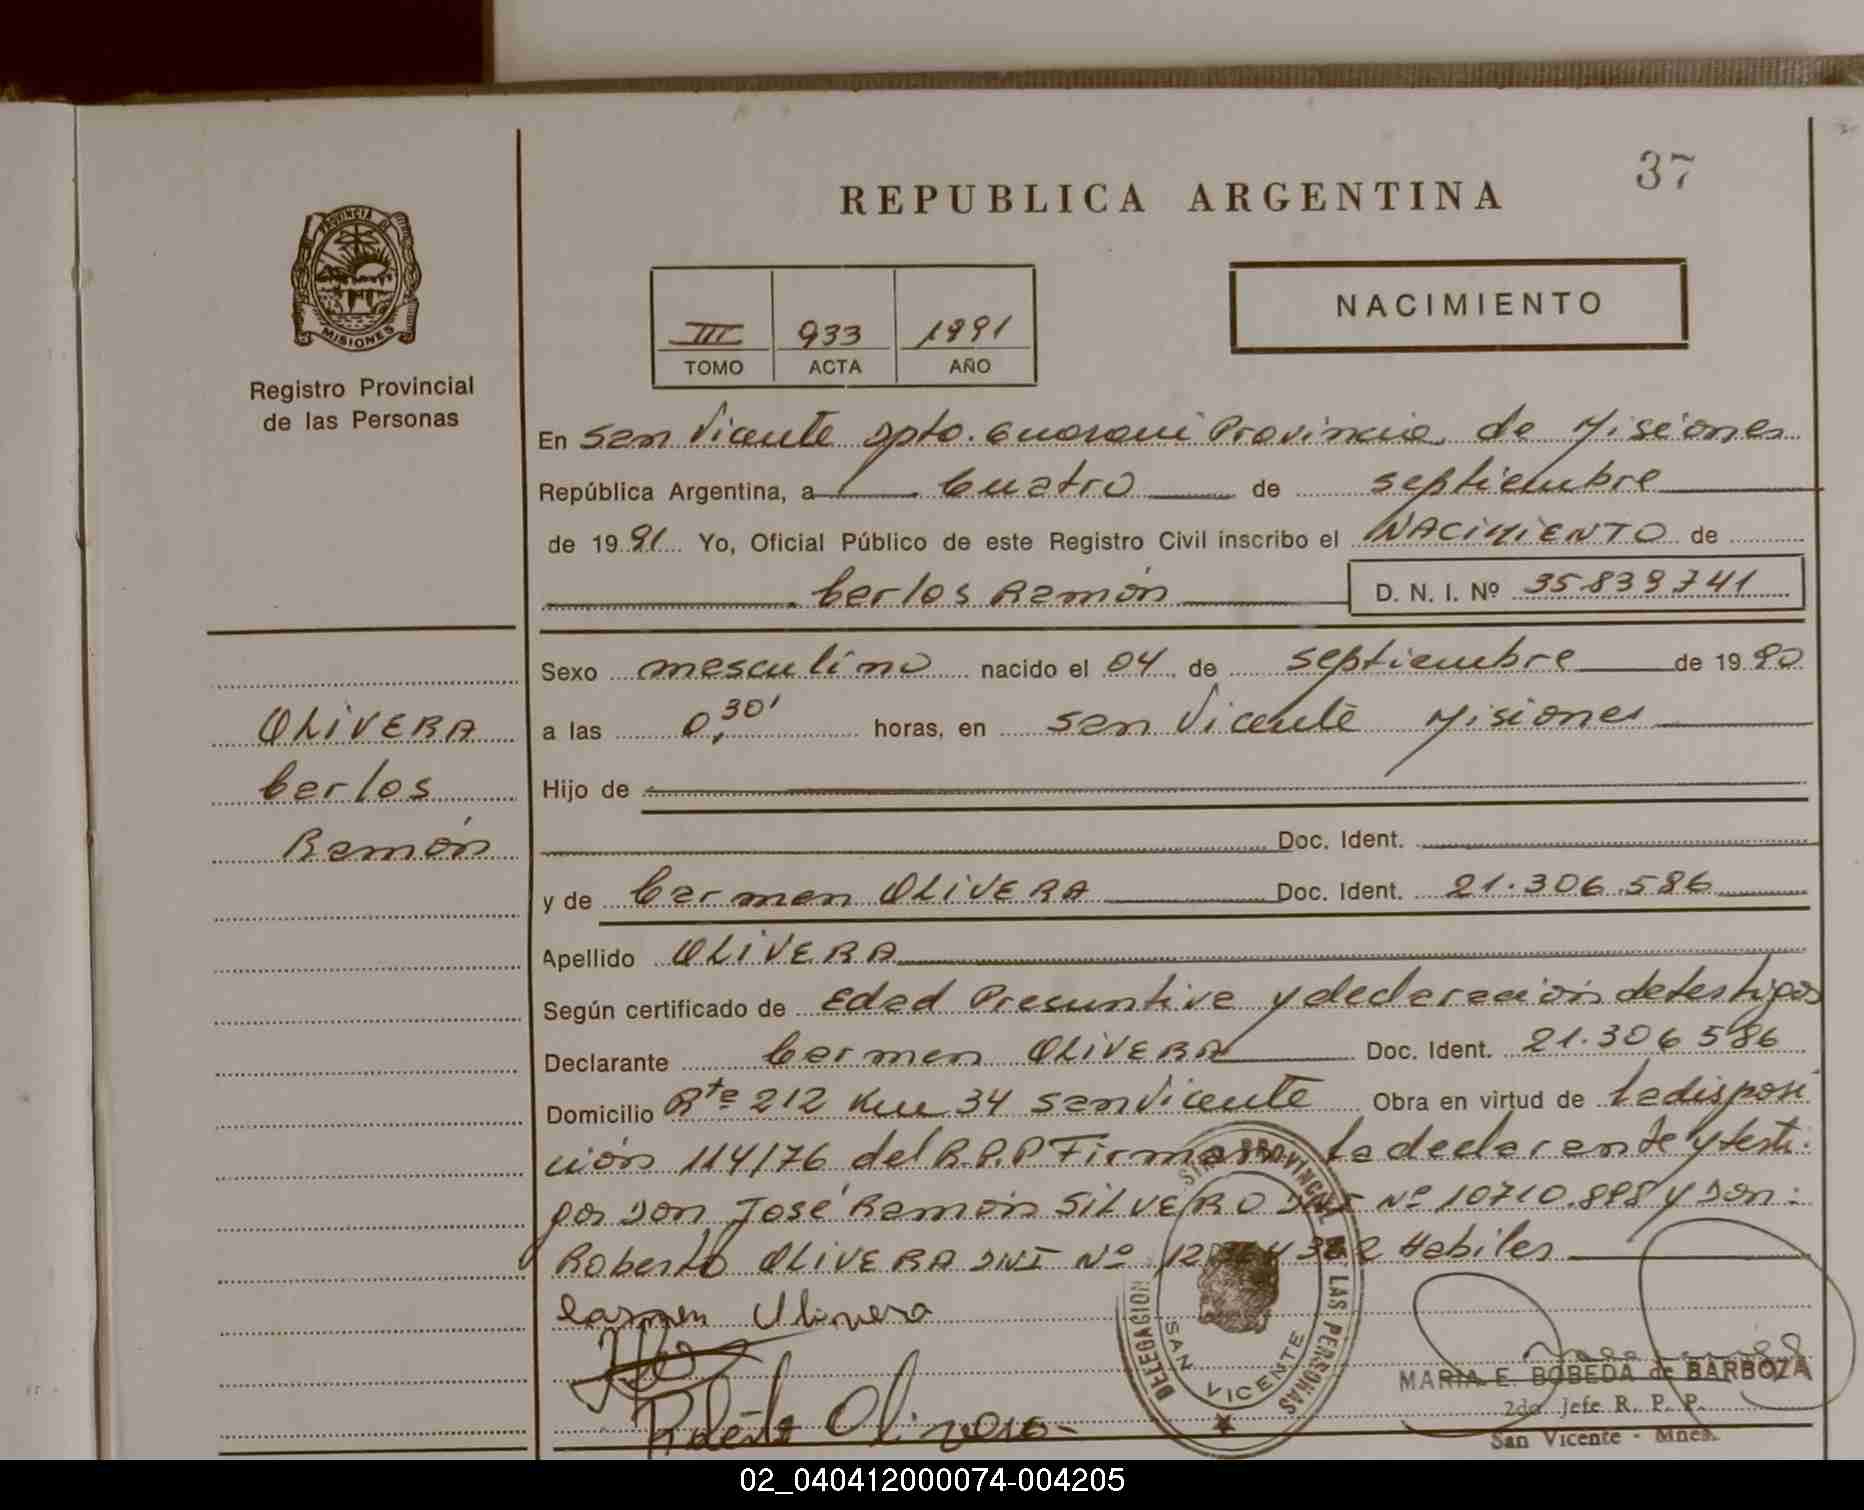 37
REPUBLICA ARGENTINA
PROVINCIA DE
MISIONES
Registro Provincial
de las Personas
NACIMIENTO
III 933 1991
TOMO ACTA AÑO
En San Vicente Dpto. Guaraní Provincia de Misiones
República Argentina, a Cuatro de septiembre
de 1991 Yo, Oficial Público de este Registro Civil inscribo el NACIMIENTO de
Carlos Ramón D. N. I. Nº 35.839.741
Sexo masculino nacido el 04 de septiembre de 1990
OLIVERA
Carlos
Ramón
a las 0,30' horas, en San Vicente Misiones
Hijo de
Doc. Ident.
y de Carmen OLIVERA Doc. Ident. 21.306.586
Apellido OLIVERA
Según certificado de Edad Presuntiva y declaración de testigos
Declarante Carmen OLIVERA Doc. Ident. 21.306.586
Domicilio Rta 212 Km 34 San Vicente Obra en virtud de la disposi
ción 114/76 del R.P.P Firman la declarante y testi-
gos Don José Ramón SILVERO DNI Nº 10710.898 y Don:
Roberto OLIVERA DNI Nº Habiles
Carmen Olivera
Roberto Olivera
DELEGACION
LAS PERSONAS
SAN VICENTE
MARIA E. BOBEDA de BARBOZA
2do Jefe R. P. P.
San Vicente - Mnes.
02_040412000074-004205